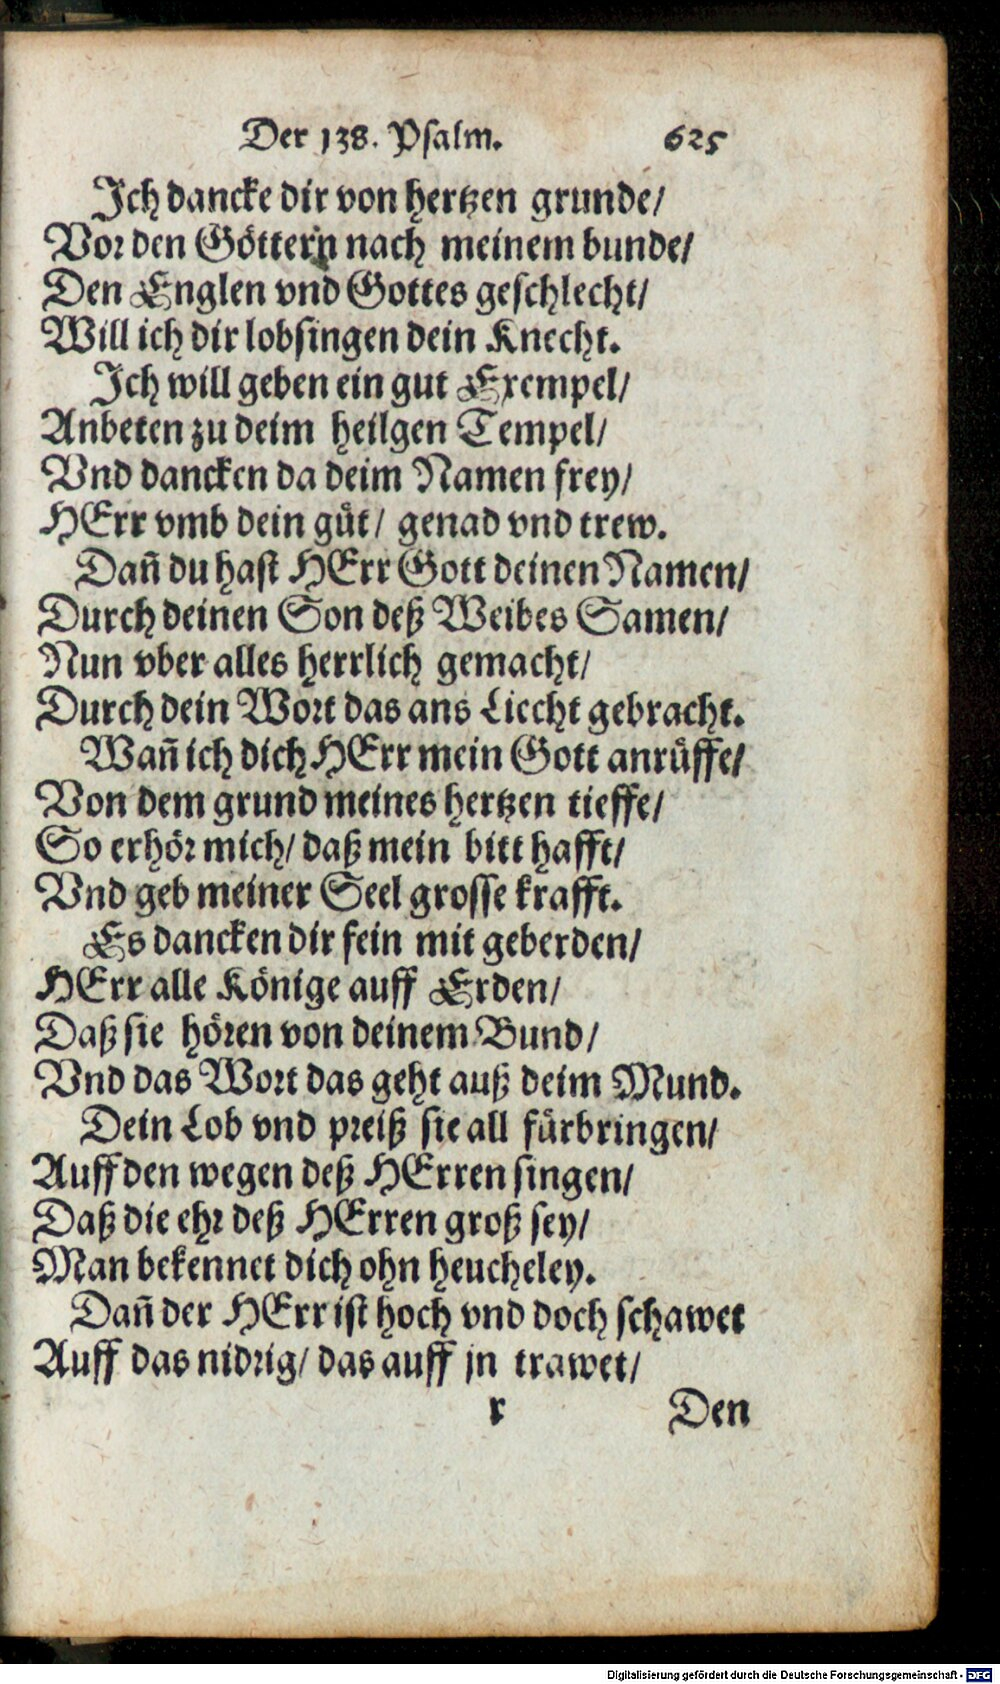 Der 138. Psalm. 625
Ich dancke dir von hertzen grunde/
Vor den Göttern nach meinem bunde/
Den Englen vnd Gottes geschlecht/
Will ich dir lobsingen dein Knecht.
Ich will geben ein gut Exempel/
Anbeten zu deim heilgen Tempel/
Vnd dancken da deim Namen frey/
HErr vmb dein güt/ genad vnd trew.
Dañ du hast HErr Gott deinen Namen/
Durch deinen Son deß Weibes Samen/
Nun vber alles herrlich gemacht/
Durch dein Wort das ans Liecht gebracht.
Wañ ich dich HErr mein Gott anrüffe/
Von dem grund meines hertzen tieffe/
So erhör mich/ daß mein bitt hafft/
Vnd geb meiner Seel grosse krafft.
Es dancken dir fein mit geberden/
HErr alle Könige auff Erden/
Daß sie hören von deinem Bund/
Vnd das Wort das geht auß deim Mund.
Dein Lob vnd preiß sie all fürbringen/
Auff den wegen deß HErren singen/
Daß die ehr deß HErren groß sey/
Man bekennet dich ohn heucheley.
Dañ der HErr ist hoch vnd doch schawet
Auff das nidrig/ das auff jn trawet/
r Den
Digitalisierung gefördert durch die Deutsche Forschungsgemeinschaft - DFG